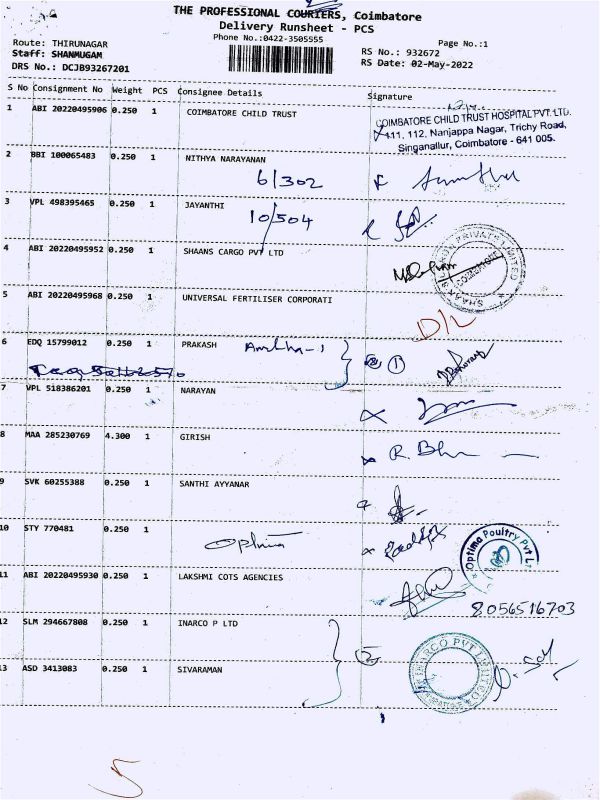 THE PROFESSIONAL COURIERS, Coimbatore
Delivery Runsheet - PCS
Phone No.:0422-3505555
Page No.:1
Route: THIRUNAGAR
Staff: SHANMUGAM
RS No.: 932672
DRS No.: DCJB93267201
RS Date: 02-May-2022
S No Consignment No Weight PCS Consignee Details Signature
1 ABI 20220495906 0.250 1 COIMBATORE CHILD TRUST
COIMBATORE CHILD TRUST HOSPITAL PVT. LTD.
111, 112, Nanjappa Nagar, Trichy Road,
Singanallur, Coimbatore - 641 005.
2 BBI 100065483 0.250 1 NITHYA NARAYANAN
6/302
3 VPL 498395465 0.250 1 JAYANTHI
10/504
4 ABI 20220495952 0.250 1 SHAANS CARGO PVT LTD
5 ABI 20220495968 0.250 1 UNIVERSAL FERTILISER CORPORATI
D/L
6 EDQ 15799012 0.250 1 PRAKASH
7 VPL 518386201 0.250 1 NARAYAN
8 MAA 285230769 4.300 1 GIRISH
9 SVK 60255388 0.250 1 SANTHI AYYANAR
10 STY 770481 0.250 1
Optima
Optima Poultry Pvt Lt
11 ABI 20220495930 0.250 1 LAKSHMI COTS AGENCIES
8056516703
12 SLM 294667808 0.250 1 INARCO P LTD
2
INARCO PVT LIMITED
13 ASD 3413083 0.250 1 SIVARAMAN
5